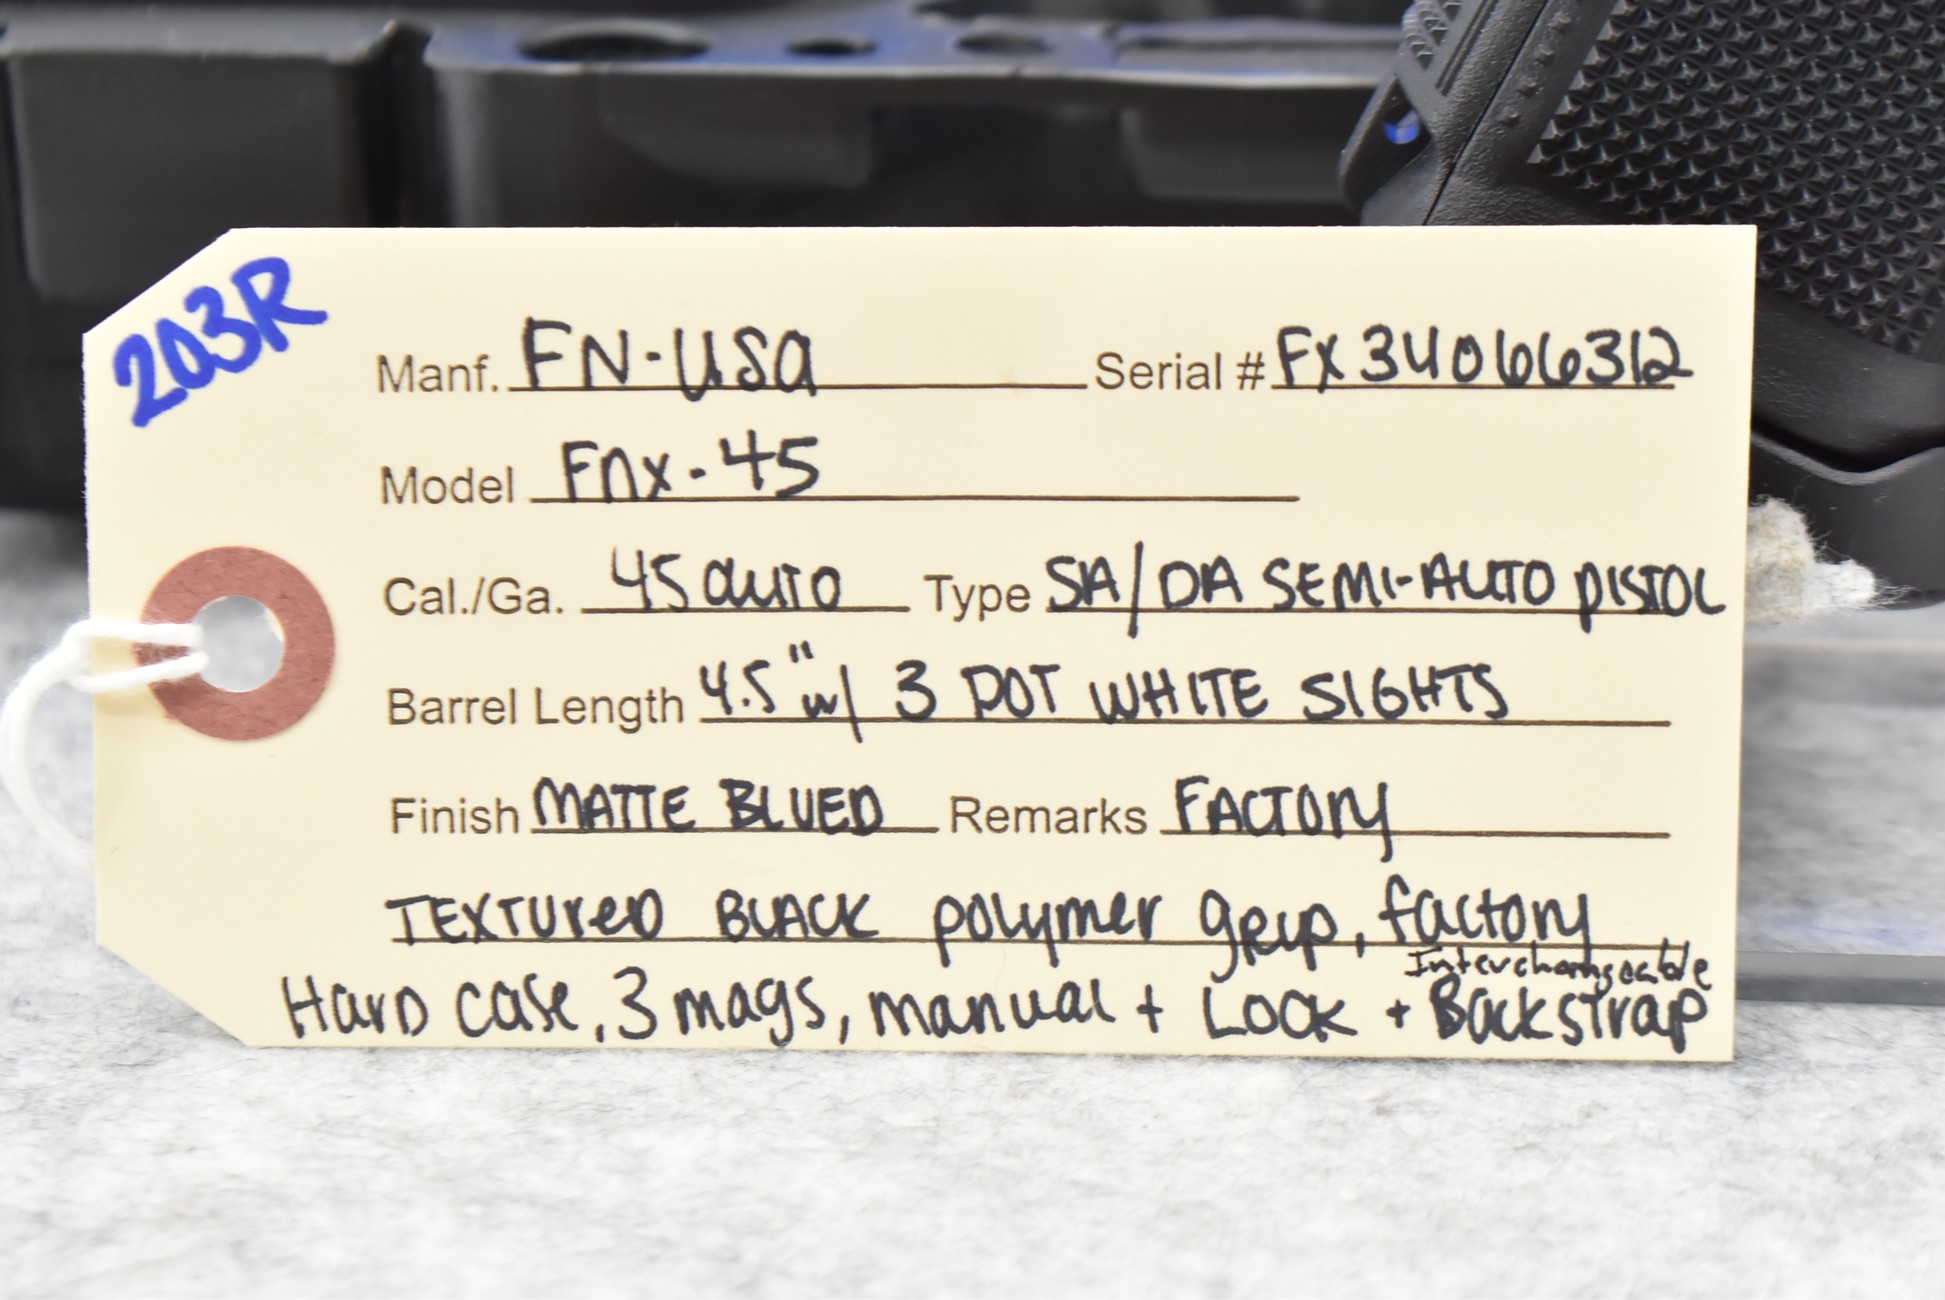 203R
Manf. FN-USA Serial # FX34066312
Model Fnx-45
Cal./Ga. 45 auto Type SA/DA SEMI-AUTO PISTOL
Barrel Length 4.5" w/ 3 DOT WHITE SIGHTS
Finish MATTE BLUED Remarks FACTORY
TEXTURED BLACK polymer grip, factory
Interchangeable
Hard case, 3 mags, manual + Lock + Backstrap